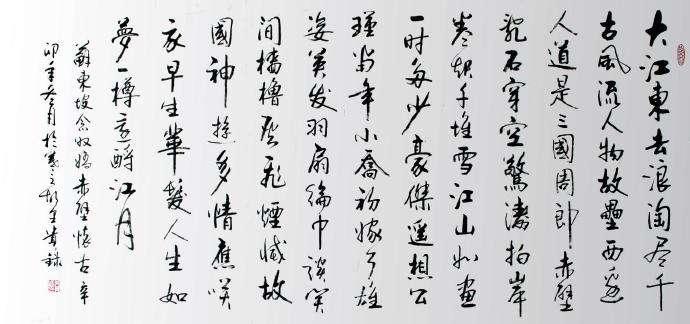 大江東去浪淘尽千
古風流人物故壘西邊
人道是三國周郎赤壁
亂石穿空驚濤拍岸
卷起千堆雪江山如畫
一时多少豪傑遥想公
瑾当年小喬初嫁了雄
姿英发羽扇綸巾談笑
间檣櫓灰飛煙滅故
國神遊多情應笑
我早生華髮人生如
夢一樽還酹江月
蘇東坡念奴嬌赤壁懷古辛
卯年冬月於